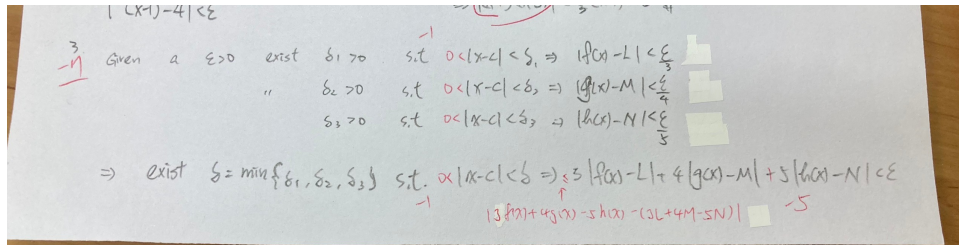 |(x-1)-4|<ε
3
-7 Given a ε>0 exist δ₁>0 s.t 0<|x-c|<δ₁ ⇒ |f(x)-L|<ε/3
-1
〃 δ₂>0 s.t 0<|x-c|<δ₂ ⇒ |g(x)-M|<ε/4
δ₃>0 s.t 0<|x-c|<δ₃ ⇒ |h(x)-N|<ε/5
⇒ exist δ=min{δ₁,δ₂,δ₃} s.t. 0<|x-c|<δ ⇒ ≤3|f(x)-L|+4|g(x)-M|+5|h(x)-N|<ε
-1 ↑ -5
|3f(x)+4g(x)-5h(x)-(3L+4M-5N)|